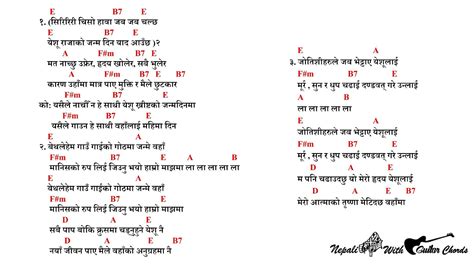 E B7 E
१. (सिरिरिरी चिसो हावा जब जब चल्छ
E B7 E
येशू राजाको जन्म दिन याद आउँछ )२
A F#m B7 E
मत नाच्छु उफ्रेर, हृदय खोलेर, सबै भुलेर
A F#m B7 E
कारण उहाँमा मात्र पाए मुक्ति र मैले छुटकार
E F#m B7 E
को: यसैले नाचौँ न हे साथी येशू ख्रीष्टको जन्मदिनमा
F#m B7 E
यसैले गाउन हे साथी वहाँलाई महिमा दिन
E A B7 E
२. बेथलेहेम गाउँ गाईको गोठमा जन्मे वहाँ
F#m B7 E A B
मानिसको रुप लिई जिउनु भयो हाम्रो माझमा ला ला ला ला ला
E A B7 E
बेथलेहेम गाउँ गाईको गोठमा जन्मे वहाँ
F#m B7 E
मानिसको रुप लिई जिउनु भयो हाम्रो माझमा
D A D E
सबै पाप बोकि क्रुसमा चढ्नुहुने येशू नै
D A D E
नयाँ जीवन पाए मैले वहाँको अनुग्रहमा नै
E B7 E
३. जोतिशीहरुले जब भेट्टाए येशूलाई
F#m B7 E
मूर्र, सुन र धुप चढाई दण्डवत् गरे उन्लाई
A B
ला ला ला ला ला
E B7 E
जोतिशीहरुले जब भेट्टाए येशूलाई
F#m B7 E
मूर्र, सुन र धुप चढाई दण्डवत् गरे उन्लाई
D A D E
म पनि चढाउदछु यो मेरो हृदय येशूलाई
D A D E
मेरो आत्माको तृष्णा मेटिदिछ वहाँमा
Nepali With Guitar Chords